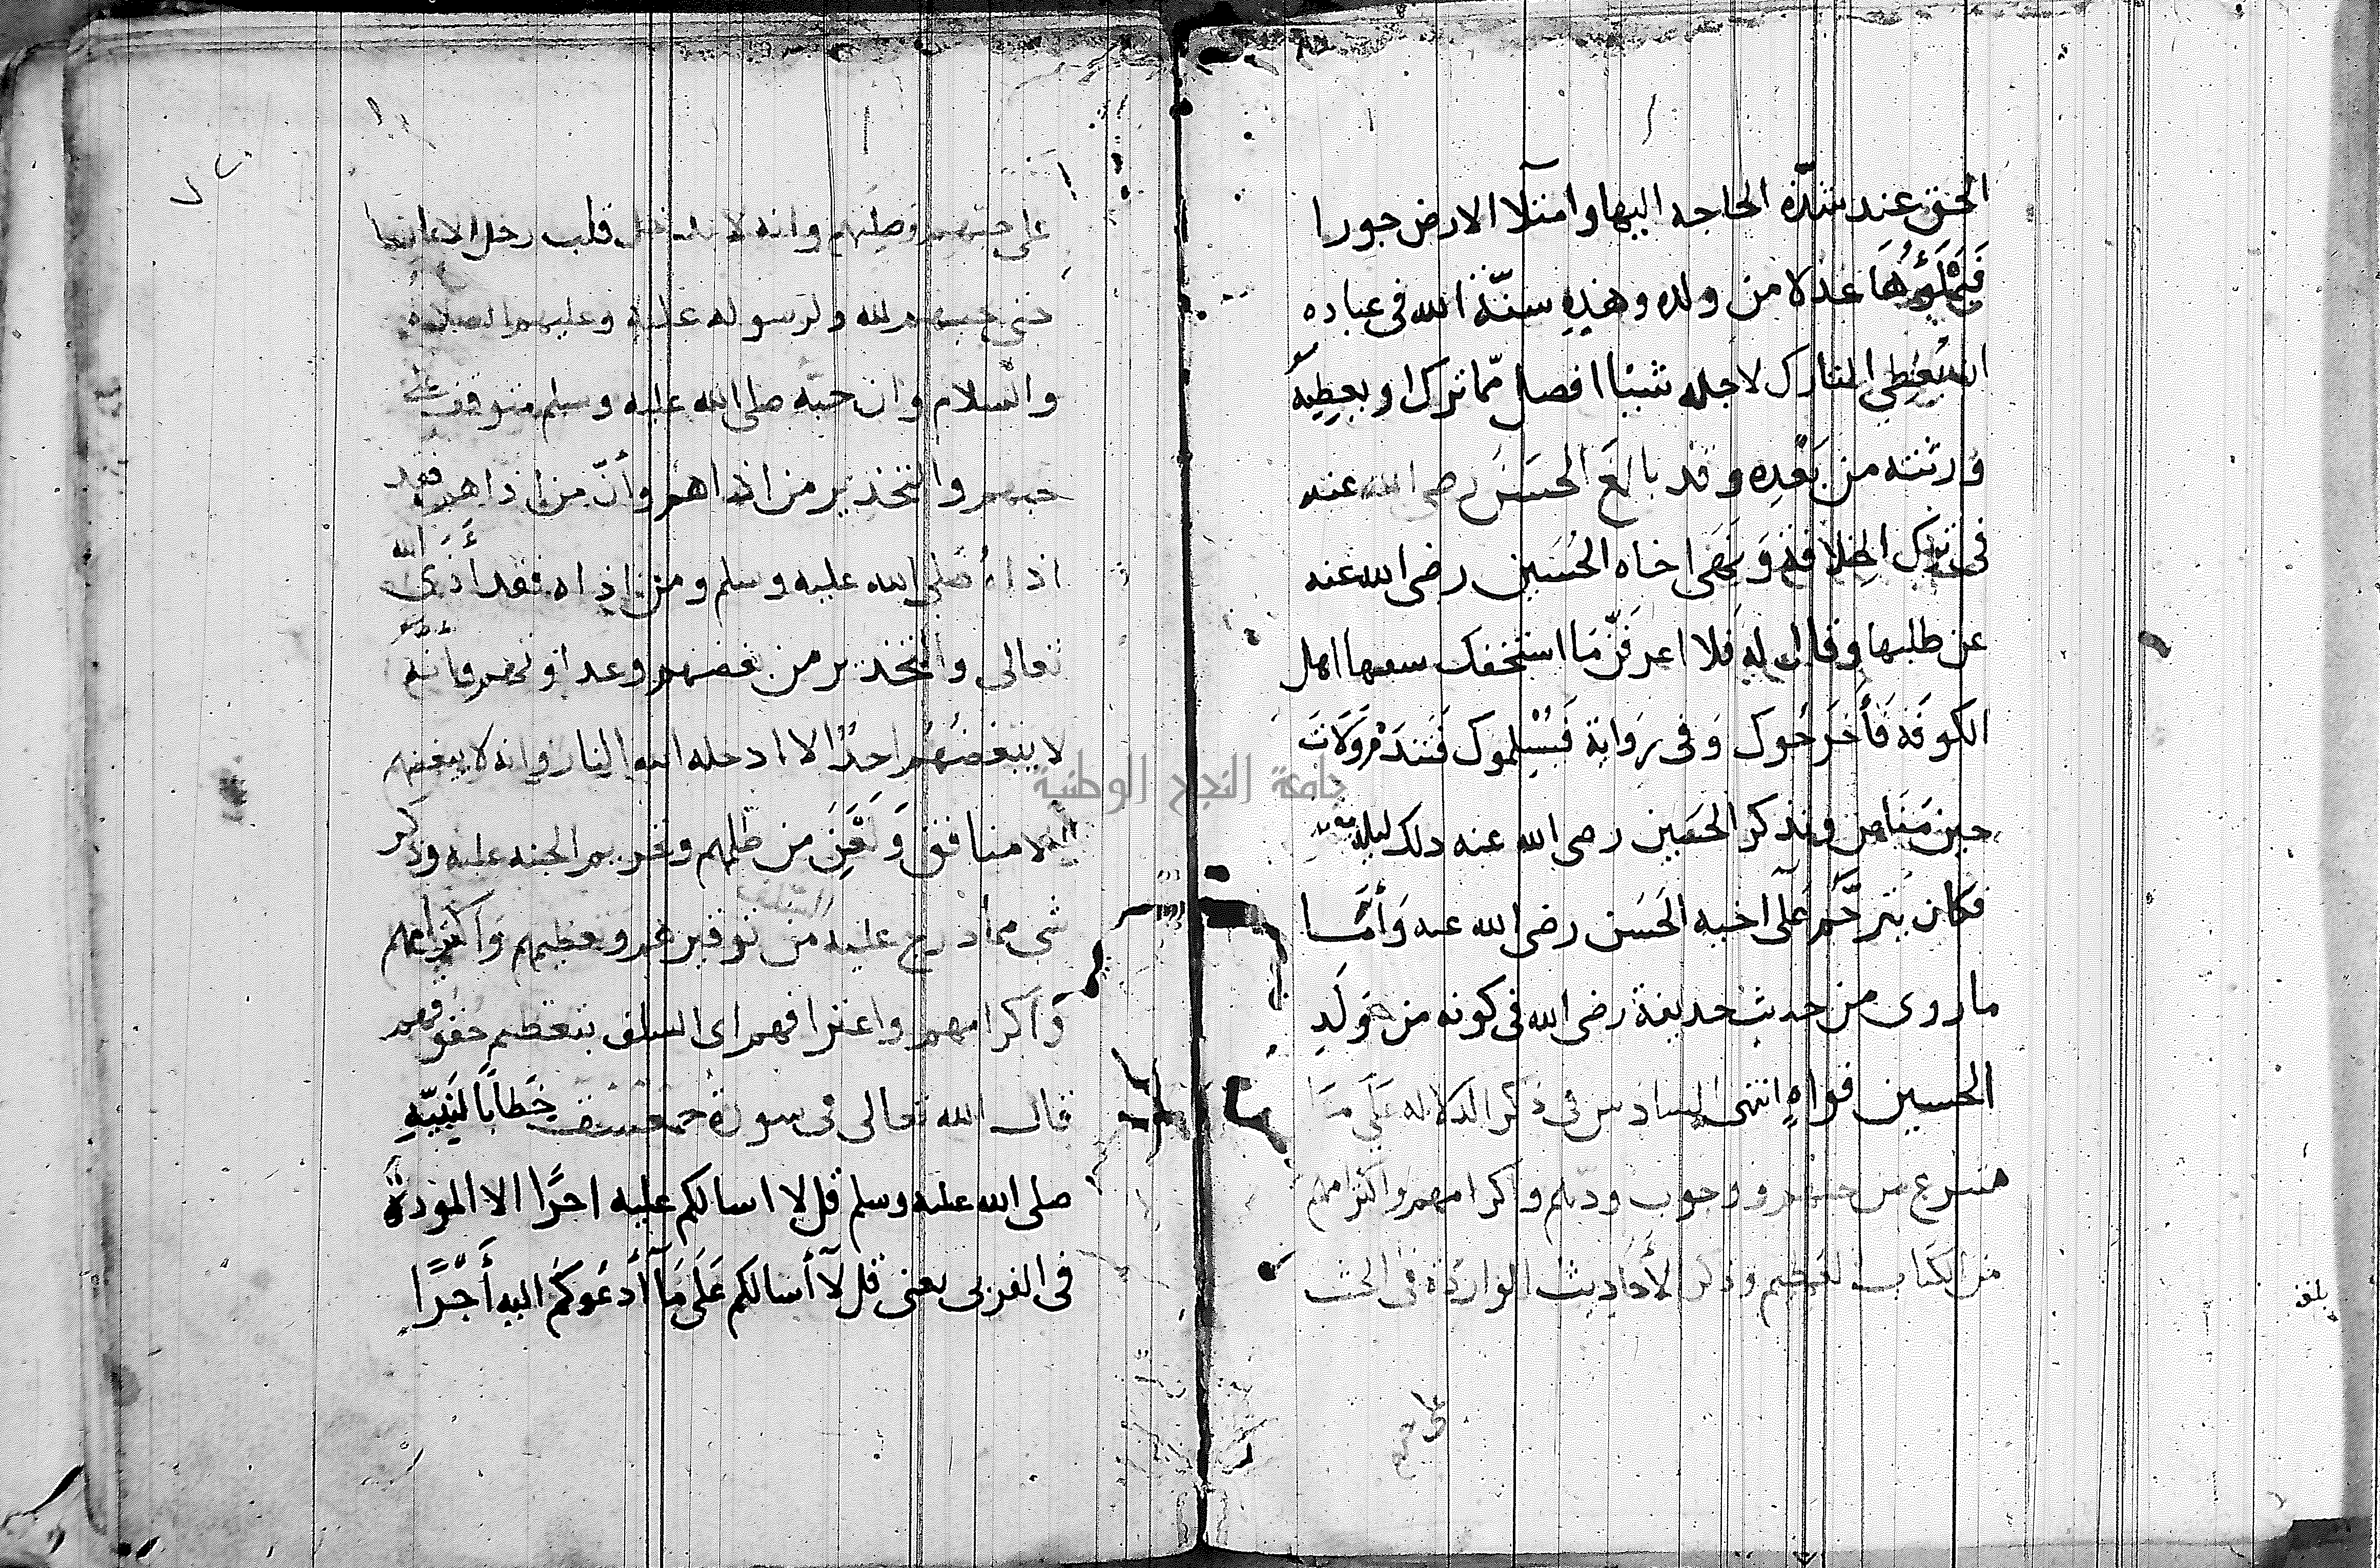 الحق عند شدّة الحاجه اليها وامتلآ الارض جورا
فَيَمْلَؤُهَا عَدْلا من ولده وهذِهِ سنّة الله فى عباده
انه يُعْطِي التارك لاجله شيئا افضل ممّا ترك او يعطِيه
ورثته من بَعْدِه وقد بالغَ الحسَنُ رضى الله عنه
فى ترك الخِلافة وَنَهَى اخاه الحُسَين رضى الله عنه
عن طلبها وقال له فَلا اعرفَنّ مَا استخفك سفهآ اهل
الكوفة فَأَخرَجُوك وَفى رِوَاية فَيُسْلموك فَتَندَمْ وَلَاتَ
حين مَنَاص وتذكر الحسَين رضى الله عنه ذلك ليلة
فكان يترحَّم عَلَى اخيه الحَسَن رضى الله عنه وَأمَّا
ما روى من حديث حذيفة رضى الله فى كونه من وَلَدِ
الحسين فواهٍ انتهى السادس فى ذكر الدلاله عَلَى مَا
من حبهم ووجوب ودّهم واكرامهم
من الكتاب وذكر الأحَاديث الواردة فى الحث
على حبّهم وصلتهم وانه لا يدخل قلب رجل الايمان
حتى يحبهم لله ولرسوله عليه وعليهم الصلاة
والسلام وان حبه صلى الله عليه وسلم متوقف على
حبهم والتحذير من اذاهم وأنّ من اذاهم فقد
اذاه صَلى الله عليه وسلم ومن اذاه فقد أذى الله
تعالى والتحذير من بغضهم وعداوتهم فانّه
لا يبغضُهُم احدٌ الا ادخله الله النار وانه لا يبغضهم
الا منافق وَلَعْنِ من ظلمهم وتحريم الجنه عليه وذكر
شى مما درج عليه من توقيرهم وتعظيمهم
السّلف
وَاكرامهم واعترافهم اى السلف بتعظيم حقوقهم
قال الله تعالى فى سورة حمعسق خطابًا لِنَبِيّهِ
صلى الله عليه وسلم قل لا اسالكم عليه اجرًا الا المودة
فى القربى يعنى قل لآ أسالكم عَلَى مَآ أدعُوكمْ اليه أجْرًا
جامعة النجاح الوطنية